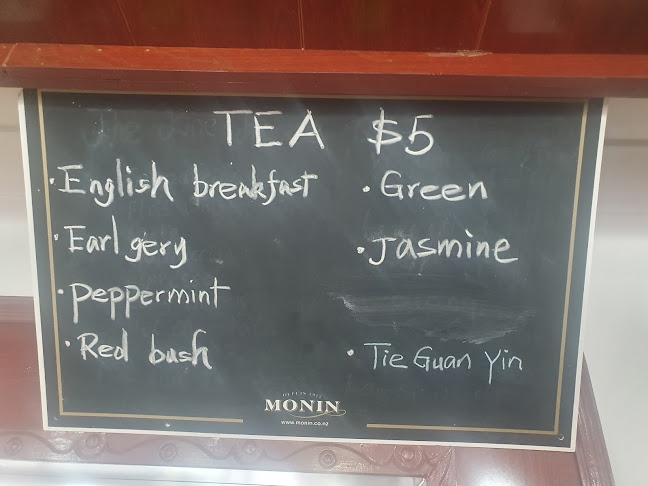 TEA $5
· English breakfast
· Earl gery
· Peppermint
· Red bush
· Green
· Jasmine
· Tie Guan Yin
MONIN
www.monin.co.nz